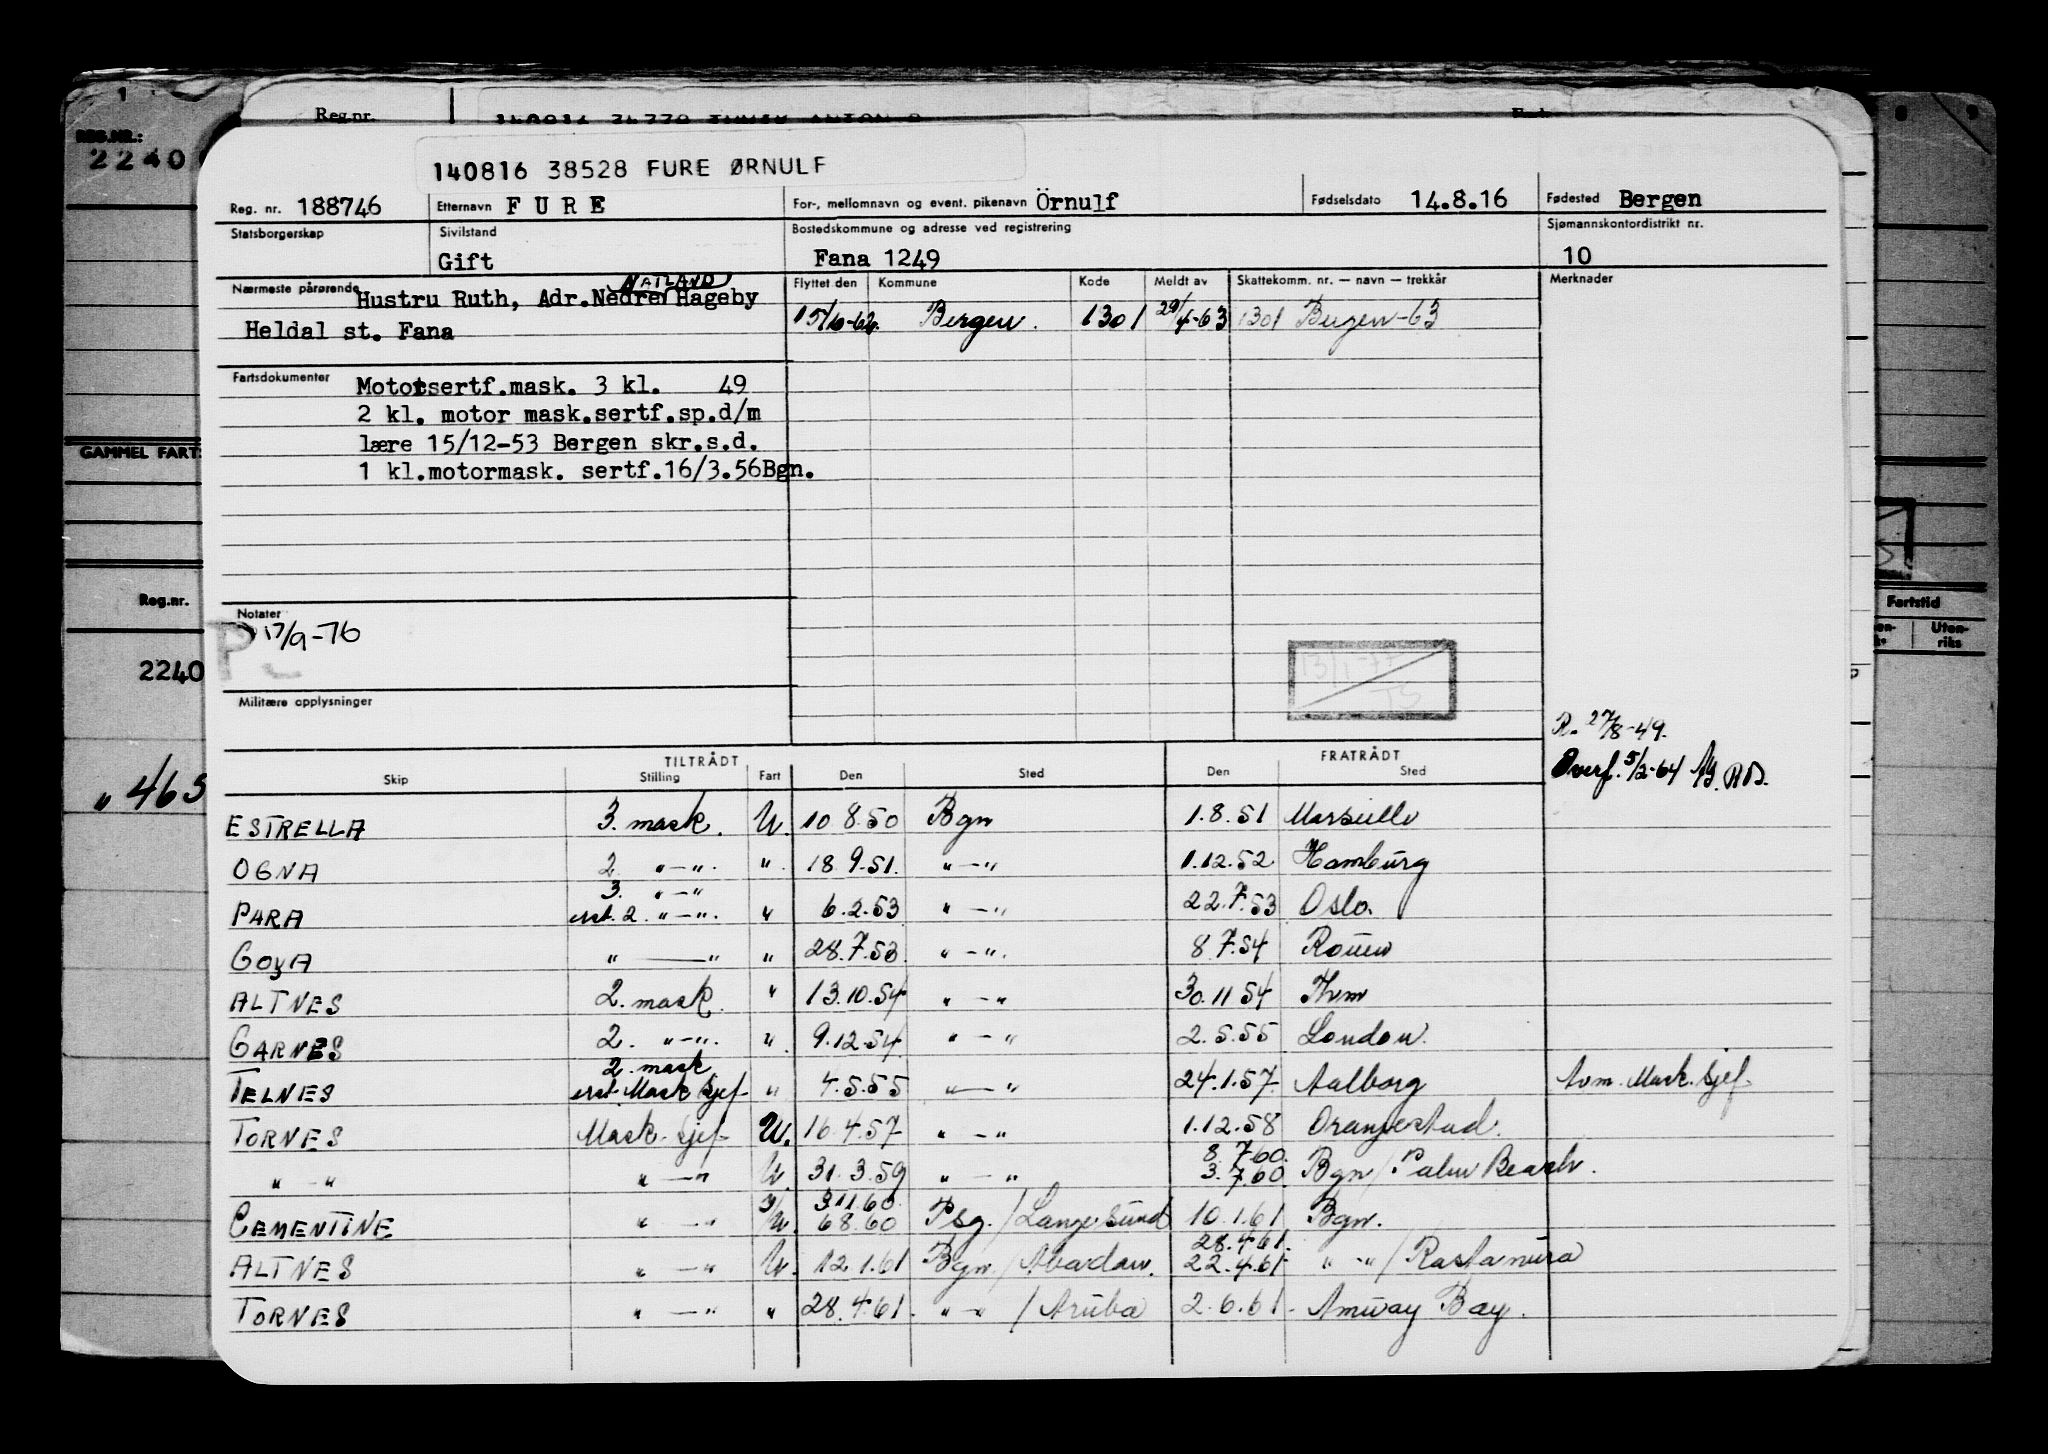 REG.NR.:
2240
GAMMEL FART
Reg.nr.
2240
" 463
Reg.nr.
Fartstid
Uten-
riks
140816 38528 FURE ØRNULF
Reg. nr. 188746 Etternavn FURE For-, mellomnavn og event. pikenavn Örnulf Fødselsdato 14.8.16 Fødested Bergen
Statsborgerskap Sivilstand Gift Bostedskommune og adresse ved registrering Fana 1249 Sjømannskontordistrikt nr. 10
Nærmeste pårørende Hustru Ruth, Adr. Nedre NATLAND Hageby
Heldal st. Fana
Flyttet den Kommune Kode Meldt av Skattekomm. nr. — navn — trekkår Merknader
15/6-62. Bergen. 1301 29/4-63 1301 Bergen-63
Fartsdokumenter Motorsertf.mask. 3 kl. 49
2 kl. motor mask.sertf.sp.d/m
lære 15/12-53 Bergen skr.s.d.
1 kl.motormask. sertf.16/3.56Bgn.
Notater
P 17/9-76
13/1-77
TS
Militære opplysninger
R. 27/8-49.
Overf. 5/2-64
TILTRÅDT FRATRÅDT
Skip Stilling Fart Den Sted Den Sted
ESTRELLA 3. mask. U. 10 8.50 Bgn 1.8.51 Marseille
OGNA 2. "—". ". 18.9.51. "—" 1.12.52 Hamburg
3. "—"
PARA erst. 2. "—". " 6.2.53 "—" 22.7.53 Oslo.
GOYA "——" " 28.7.53. "—". 8 7.54 Rouen
ALTNES 2. mask. " 13.10.54 "—" 30.11 54 Thm
GARNES 2. "—". ". 9.12.54. "—" 2.5.55 London.
2. mask
TELNES erst. Mask sjef " 4.5.55 "—" 24.1.57. Aalborg Avm. Mask. sjef
TORNES Mask. sjef U. 16.4.57 "—" 1.12.58 Oranjestad.
8. 7.60.
"—" "—" U. 31.3.59 "—" 3. 7.60. Bgn/Palm Beach.
3.11.60.
CEMENTINE "—" U. 6 8.60 Psg./Langesund 10.1.61 Bgn.
28.4.61.
ALTNES "—" U. 12.1.61 Bgn/Abadan. 22.4.61 "—"/Rastanura
TORNES "—" " 28.4.61. "—" /Aruba 2.6.61. Amuay Bay.